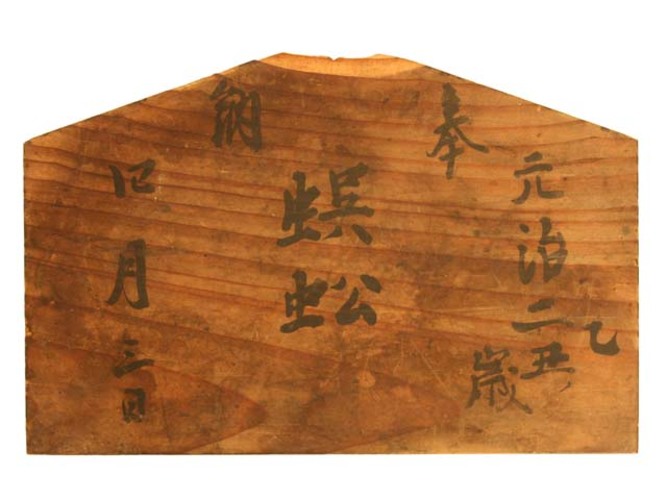 奉
納
元治二乙丑歳
蜈蚣
四月三日